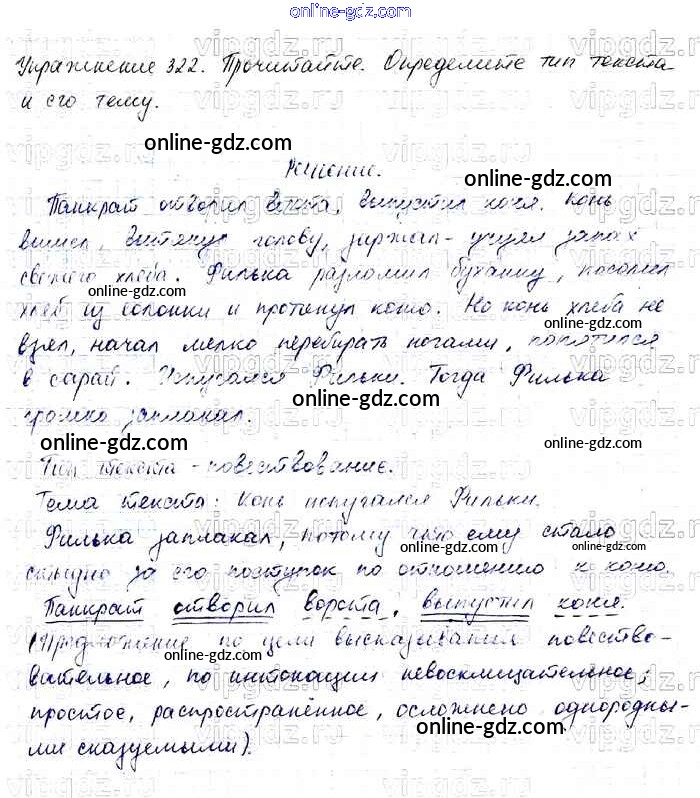 online-gdz.com
Упражнение 322. Прочитайте. Определите тип текста
и его тему.
online-gdz.com
Решение.
online-gdz.com
Панкрат отворил ворота, выпустил коня. Конь
вышел, вытянул голову, заржал - учуял запах
свежего хлеба. Филька разломил буханку, посолил
хлеб из солонки и протянул коню. Но конь хлеба не
взял, начал мелко перебирать ногами, попятился
в сарай. Испугался Фильки. Тогда Филька
громко заплакал.
Тип текста - повествование.
Тема текста: Конь испугался Фильки.
Филька заплакал, потому что ему стало
стыдно за его поступок по отношению к коню.
Панкрат отворил ворота, выпустил коня.
(Предложение по цели высказывания повество-
вательное, по интонации невосклицательное,
простое, распространённое, осложнено однородны-
ми сказуемыми).